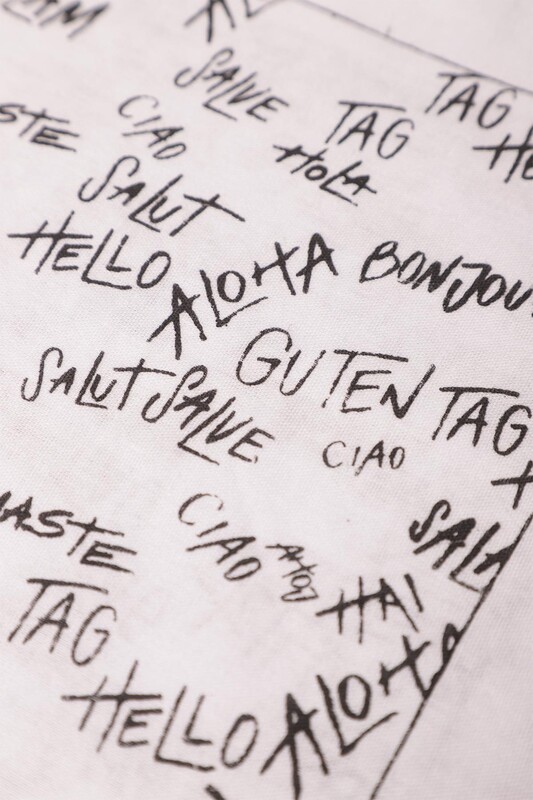 SALVE
TAG
CIAO
TAG
HOLA
SALUT
HELLO
ALOHA
BONJOU
GUTEN TAG
SALUT SALVE
CIAO
ASTE
CIAO
HAI
TAG
HELLO ALOHA